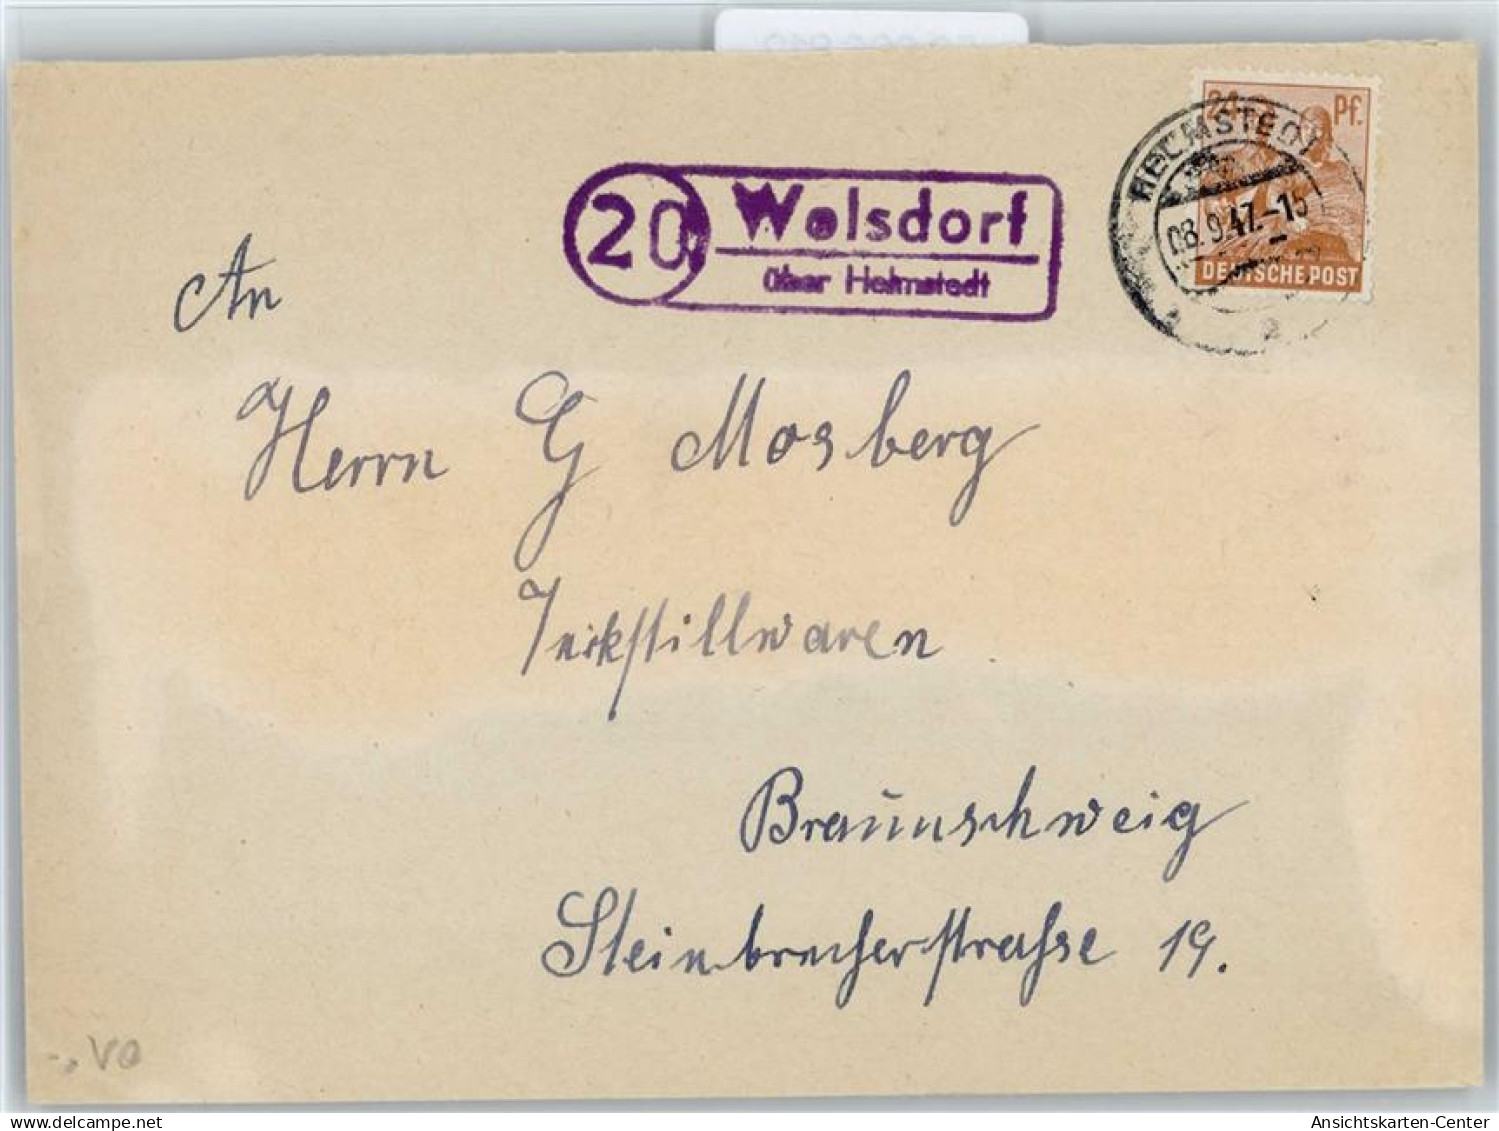 24 Pf.
HELMSTEDT
08.9.47.-15
DEUTSCHE POST
20 Wolsdorf
über Helmstedt
An
Herrn G Mosberg
Teikstillwaren
Braunschweig
Steinbrecherstrasse 19.
VO
delcampe.net
Ansichtskarten-Center